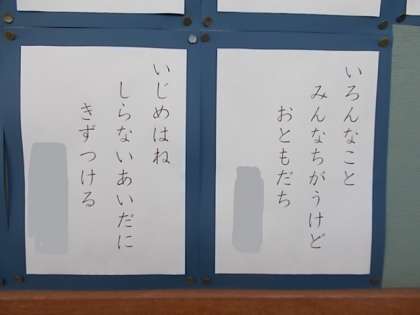 いろんなこと
みんなちがうけど
おともだち
いじめはね
しらないあいだに
きずつける